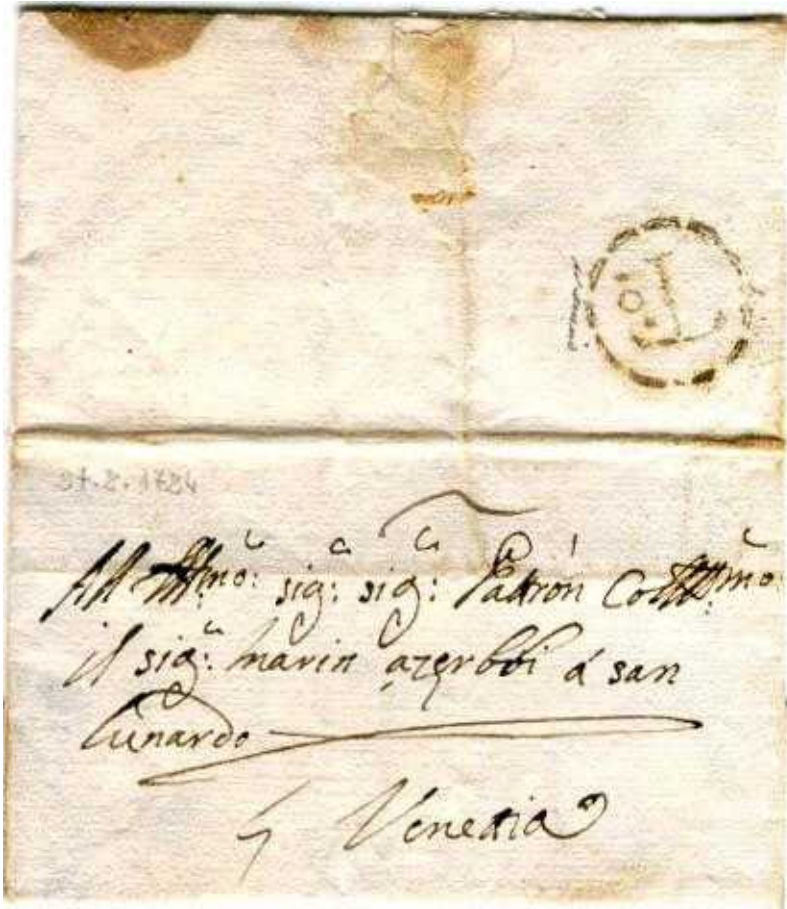 31.8.1784
All Ill.mo: sig.r: sig.r: Padron Col.mo:
il sig.r: marin azerbbi á san
Lunardo
Venetia